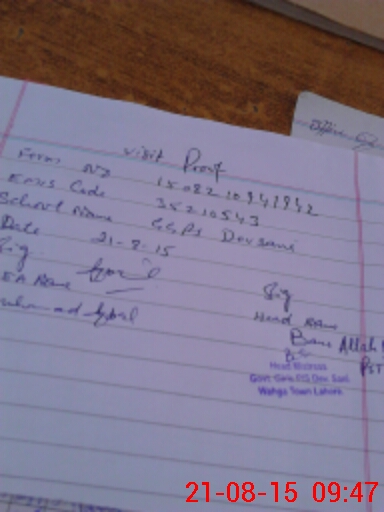 visit Proof
Form No 1508210941942
Emis Code 35210543
School Name GGPS Dev Sani
Date 21-8-15
Sig.
Name
Muhammad Iqbal
Sig
Head Name
Allah
PST
Head Mistress
Govt. Girls P/S Dev Sani
Wahga Town Lahore
21-08-15 09:47